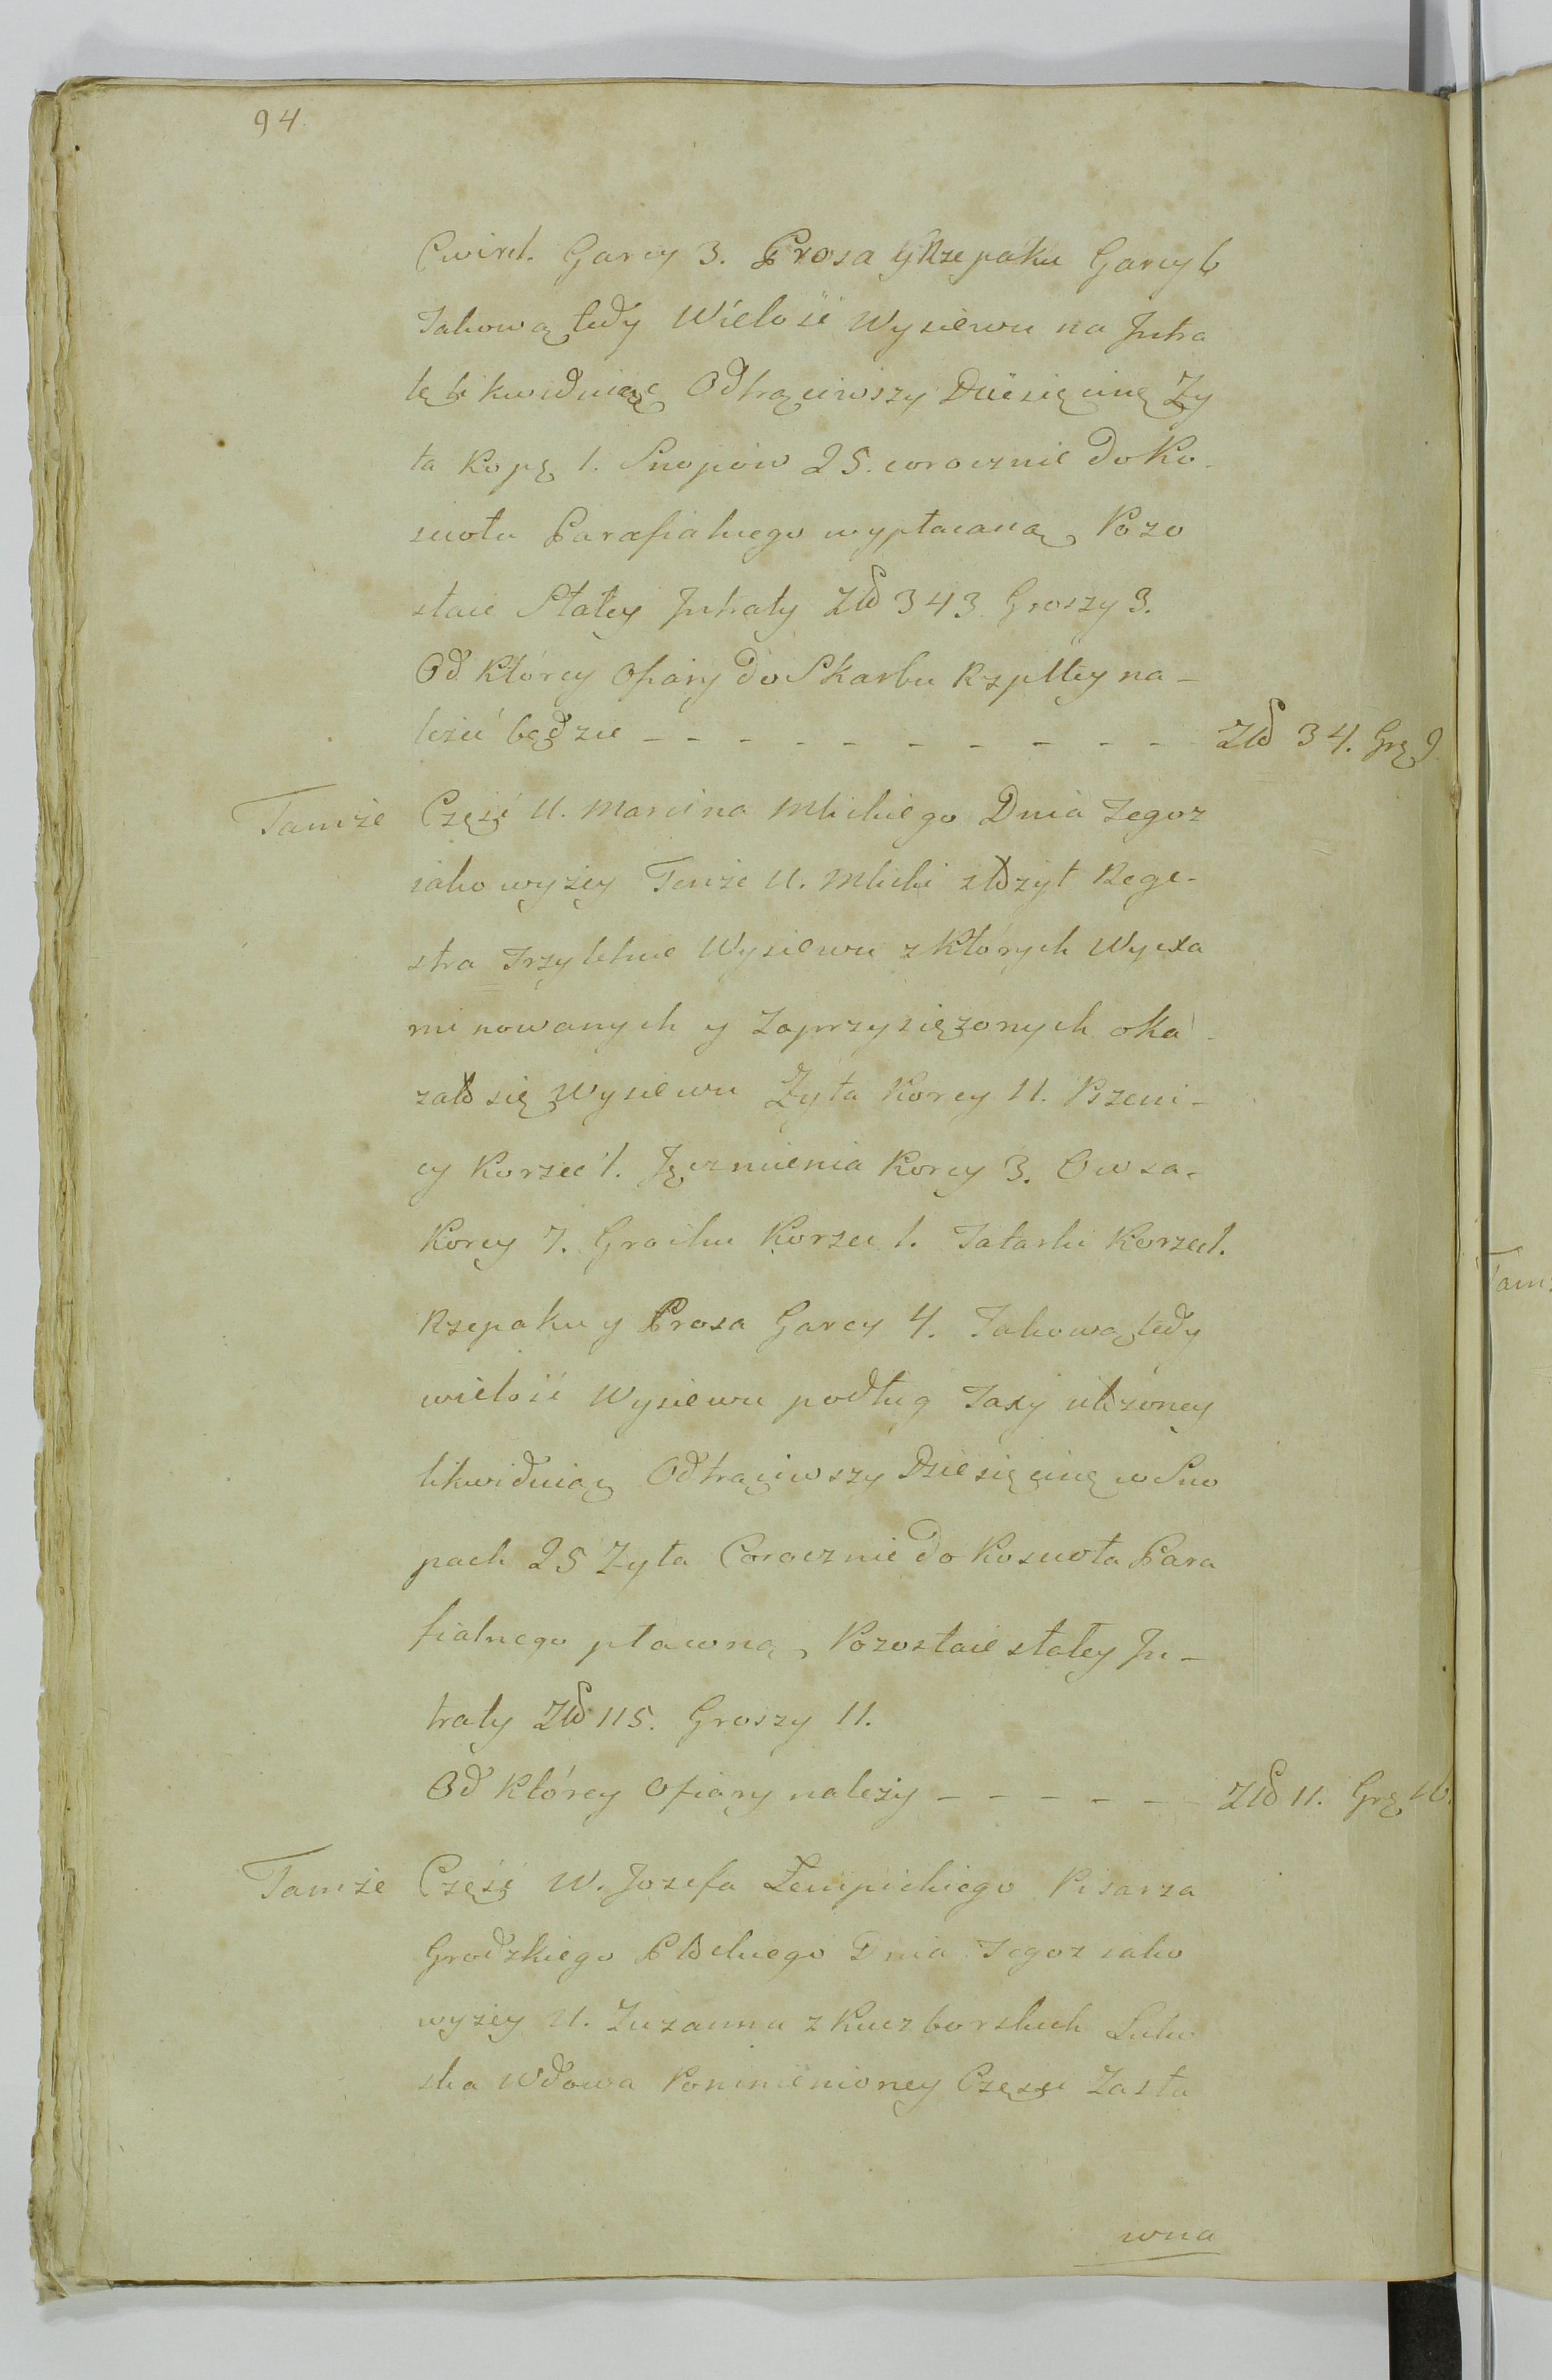 94.
Cwierć. Garcy 3. Prosa y Rzepaku Garcy 6
Takową tedy Wielość Wysiewu na Intra
tę likwiduiąc Odtrąciwszy Dziesięcinę Ży
ta Kopę 1. Snopow 25. corocznie do Ko-
scioła Parafialnego wypłacaną, Pozo
staie Stałey Intraty Złł 343 Groszy 3.
Od Którey Ofiary do Skarbu Rzpltey na-
leżeć będzie - - - - - - - - - - Złł 34. Grę 9
Tamże Część U. Marcina Mlickiego Dnia Tegoz
iako wyżey Tenże U. Mlicki złożył Rege-
stra Trzyletnie Wysiewu z Których Wyexa
minowanych y Zaprzysiężonych oka-
zało się Wysiewu Żyta Korcy 11. Pszeni-
cy Korzec 1. Jęczmienia Korcy 3. Owsa-
Korcy 7. Grochu Korzec 1. Tatarki Korzec 1.
Rzepaku y Prosa Garcy 4. Takową tedy
wielość Wysiewu podług Taxy ułożoney
likwiduiąc Odtrąciwszy Dziesięcinę w Sno
pach 25 Żyta Corocznie do Koscioła Para
fialnego płaconą, Pozostaie stałey In-
traty Złł 115. Groszy 11.
Od Którey Ofiary należy - - - - - - Złł 11. Grę 16.
Tamże Część W. Jozefa Łempickiego Pisarza
Grodzkiego Dnia Tegoz iako
wyżey U. Zuzanna z Kuczborskich
ska Wdowa Pomienioney Części Zasta
wna
Tam